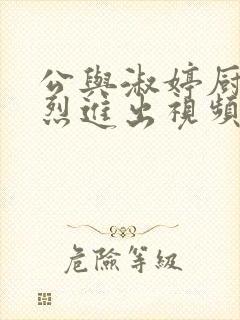 公與淑婷厨
烈進出視頻
危險等級